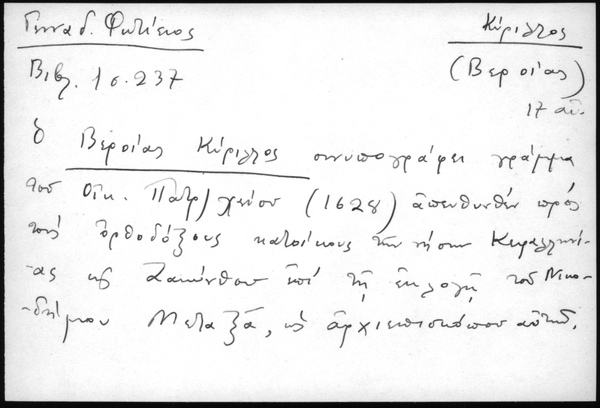 Γενναδ. Φωτίειος
Κύριλλος
Βιβλ. 1 σ. 237
(Βεροίας)
17 αἰ.
ὁ Βεροίας Κύριλλος συνυπογράφει γράμμα
τοῦ Οἰκ. Πατρ/χείου (1628) ἀπευθυνθέν πρός
τούς ὀρθοδόξους κατοίκους τῶν νήσων Κεφαλληνί-
-ας κ Ζακύνθου ἐπί τῇ ἐκλογῇ τοῦ Νικο-
-δήμου Μεταξᾶ, ὡς ἀρχιεπισκόπου αὐτῶν.